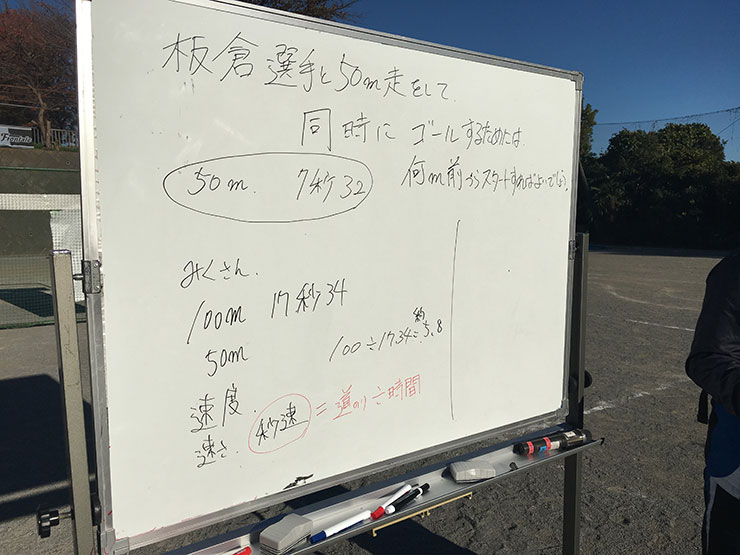 板倉選手と50m走をして
同時にゴールするためには
何m前からスタートすればよいでしょう。
50m 7秒32
みくさん.
100m 17秒34
50m
100÷17.34≒約5.8
速度.
速さ.
秒速=道のり÷時間
Frontale